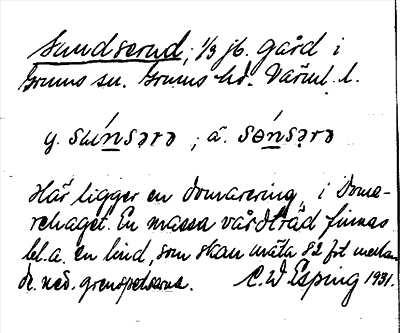 Sundserud, 1/3 jb. gård i
Grums sn. Grums hd. Värml. l.
y. ; ä.
Här ligger en domarering, i Doma-
rehaget. En massa vårdträd finnas
bl.a. en lind, som skall mäta 82 fot mellan
de ned. grenspetsarna. C. W Esping 1931.